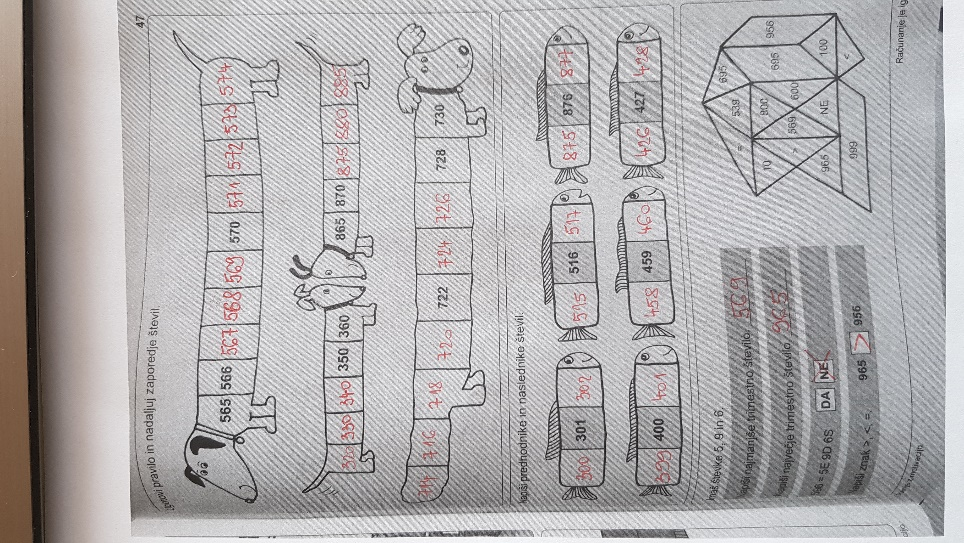 47
pravilo in nadaljuj zaporedje števil.
565 566 567 568 569 570 571 572 573 574
320 330 340 350 360
865 870 875 880 885
714 716 718 720 722 724 726 728 730
predhodnike in naslednike števil.
300 301 302
515 516 517
875 876 877
399 400 401
458 459 460
426 427 428
števke 5, 9 in 6.
najmanjše trimestno število. 569
največje trimestno število. 965
= 5E 9D 6S DA NE
znak >, < , =.
965 > 956
695
956
539
695
100
<
=
600
569
10
>
NE
965
999
Računanje je